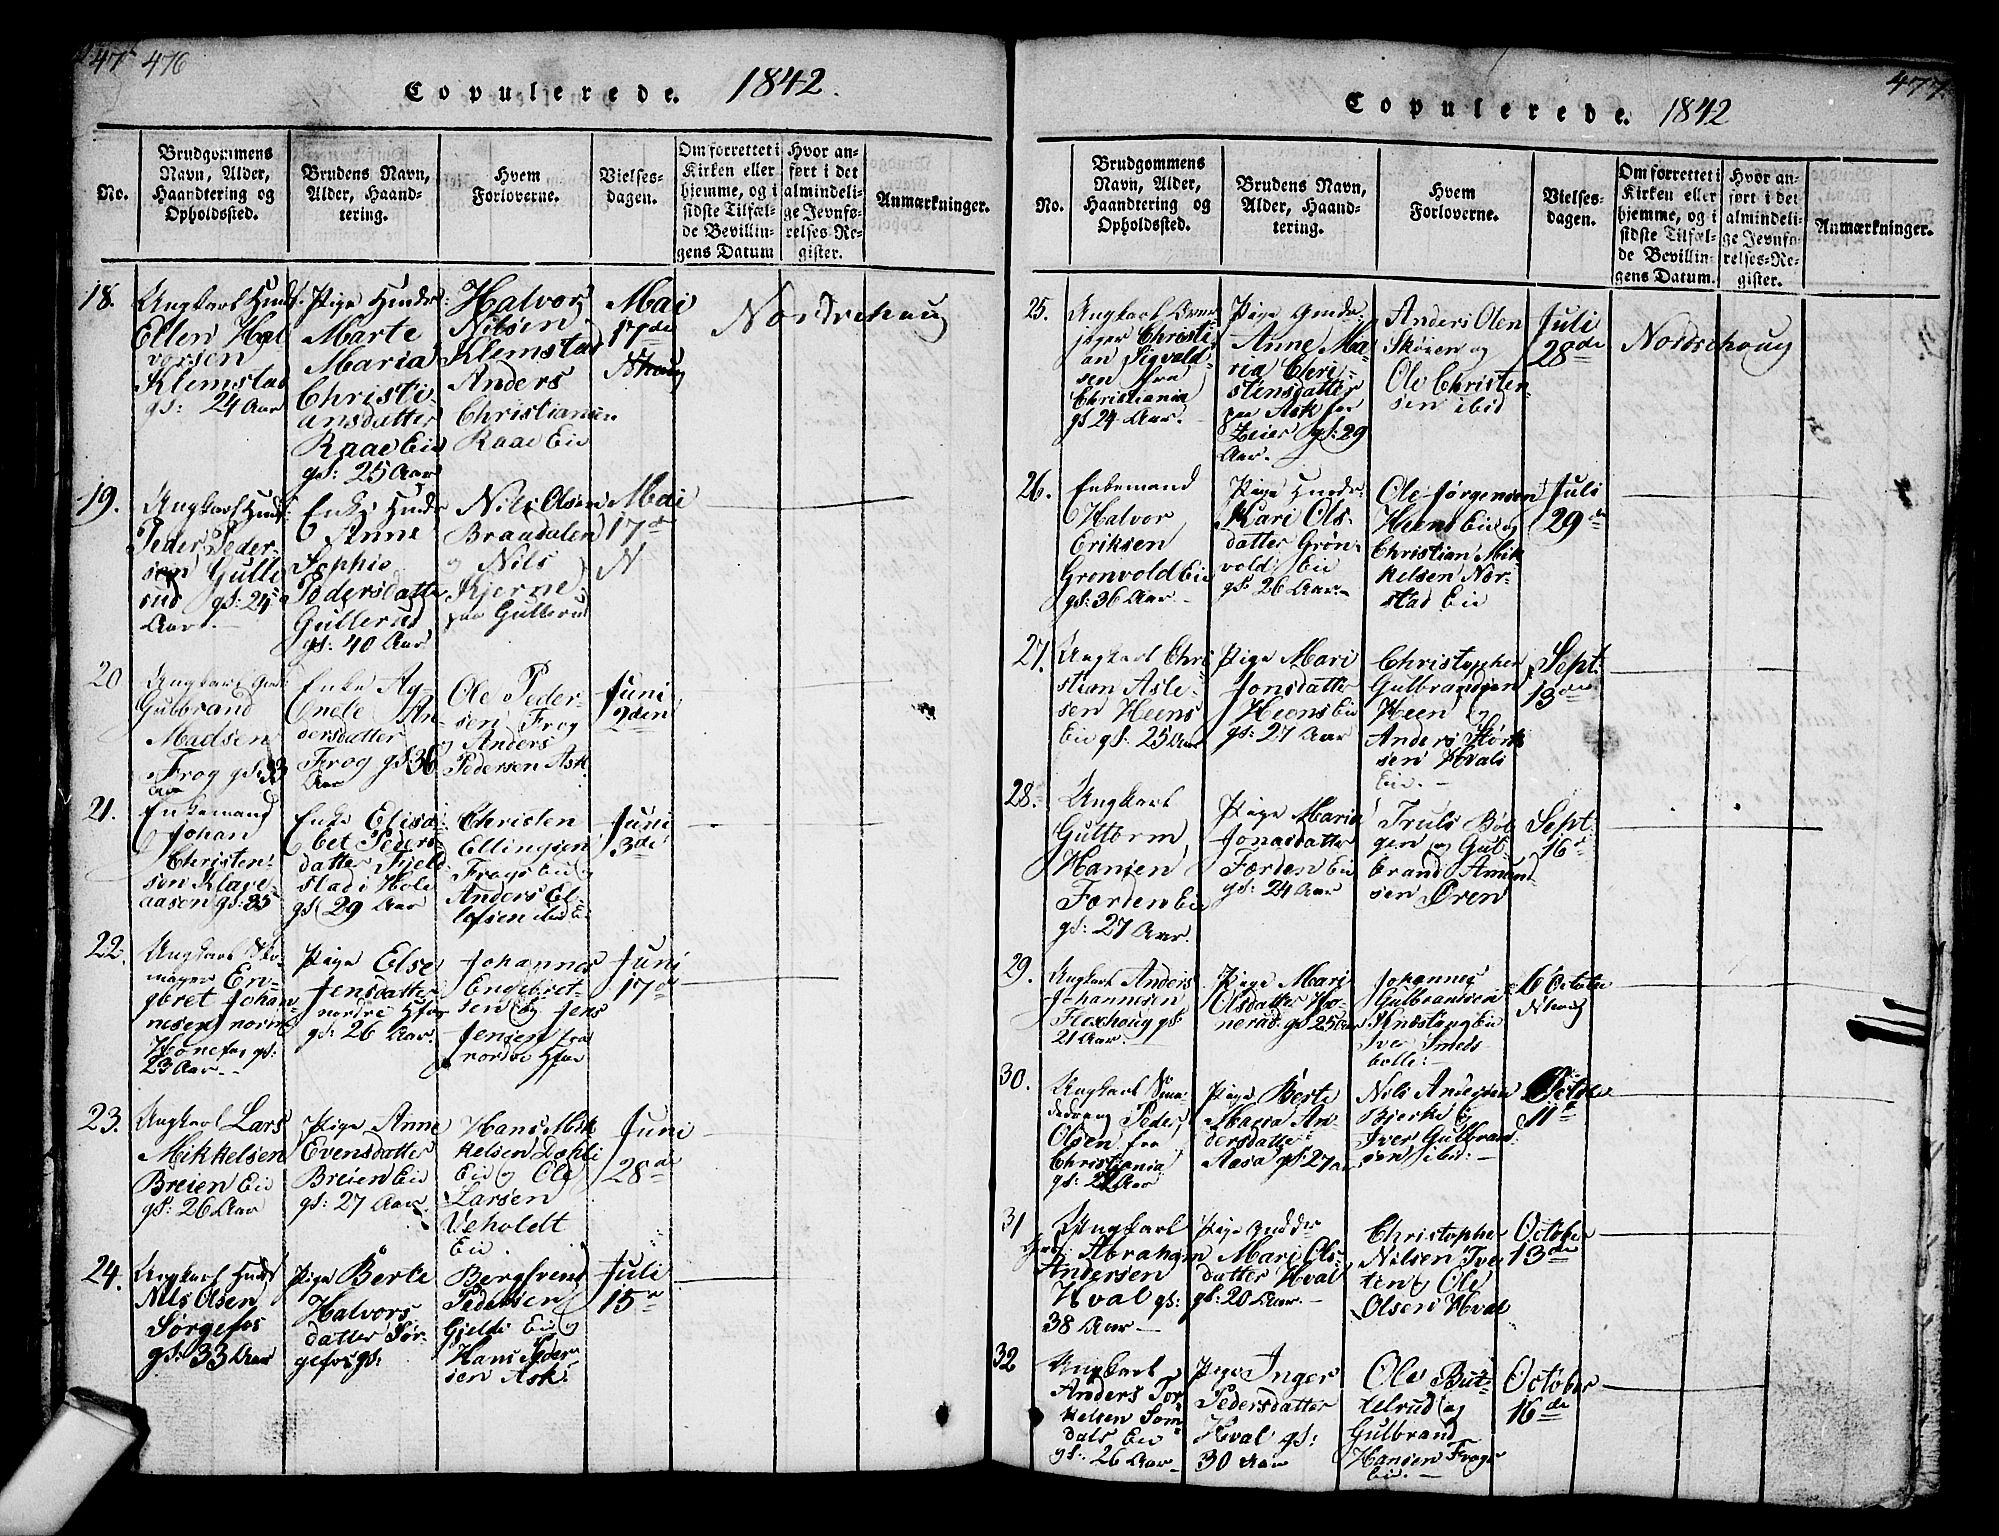 476
Copulerede. 1842.
No.
Brudgommens
Navn, Alder,
Haandtering og
Opholdssted.
Brudens Navn,
Alder, Haand-
tering.
Hvem
Forloverne.
Vielses-
dagen.
Om forrettet i
Kirken eller
hjemme, og i
sidste Tilfæl-
de Bevillin-
gens Datum
Hvor an-
ført i det
almindeli-
ge Jevnfø-
relses-Re-
gister.
Anmærkninger.
18.
Ungkarl
Ellen Hal
vorsen
Klemstad
gl: 24 Aar
Pige
Marte
Maria
Christi-
ansdatter
Raae Eie
gl: 25 Aar
Halvor
Nilsen
Klemstad
Anders
Christiansen
Raae Eie
Mai
17de
Nhaug
Nordrehaug
19.
Ungkarl
Peder Peder-
sen Gulle
rud gl: 24
Aar.
Enke
Anne
Sophie
Pedersdatter
Gullerud
gl: 40 Aar
Nils Olsen
Braadalen
og Nils
Kjerne
paa Gullerud
Mai
17de
N
20
Ungkarl
Gulbrand
Madsen
Frog gl: 33
Aar
Enke Ag-
nete An-
dersdatter
Frog gl 36
Aar
Ole Peder-
sen Frog
og Anders
Pedersen Ask
Juni
2den
21.
Enkemand
Johan
Christen-
sen Klæve-
aasen gl: 35
Enke Elisa
bet Peders
datter Fjeld
stad i Hole
gl 29 Aar
Christen
Ellingsen
Frogs Eie og
Anders El-
lefsen
Juni
3de
22.
Ungkarl Sko-
mager En-
gbret Johan-
nesen
Hønefos gl:
23 Aar.
Pige Else
Jensdatter
nordre Hfos
gl: 26 Aar.
Johannes
Engebret-
sen og Jens
Jensen fra
nordre Hfos
Juni
17de
23.
Ungkarl Lars
Mikkelsen
Breien Eie
gl: 26 Aar
Pige Anne
Evensdatter
Breien Eie
gl: 27 Aar
Hans Mik
kelsen Dæhli
Eie og Ole
Larsen
Veholdt
Eie.
Juni
28de
24.
Ungkarl
Nils Olsen
Sørgefos
gl: 33 Aar
Pige Berte
Halvors
datter Sør-
gefos gl:
Bergsvend
Pedersen
Gjelde Eie og
Hans Peder
sen Ask.
Juli
15de
477
Copulerede. 1842
No.
Brudgommens
Navn, Alder,
Haandtering og
Opholdssted.
Brudens Navn,
Alder, Haand-
tering.
Hvem
Forloverne.
Vielses-
dagen.
Om forrettet i
Kirken eller
hjemme, og i
sidste Tilfæl-
de Bevillin-
gens Datum.
Hvor an-
ført i det
almindeli-
ge Jevnfø-
relses-Re-
gister.
Anmærkninger.
25.
Ungkarl
Christi-
an Sigvald-
sen fra
Christiania
gl 24 Aar.
Pige
Anne Ma-
ria Chri-
stensdatter
paa Ask
gl: 29
Aar.
Anders Olsen
Skøien og
Ole Christen
sen ibid
Juli
28de
Nordrehoug
26.
Enkemand
Halvor
Eriksen
Grønvold Eie
gl: 36 Aar.
Pige
Kari Ols-
datter Grøn-
vold Eie
gl: 26 Aar.
Ole Jørgensen
Heens Eie og
Christian Mik
kelsen Nor-
stad Eie
Juli
29de
27.
Ungkarl Chri
stian Asle-
sen Heens
Eie gl: 25 Aar
Pige Mari
Jonsdatter
Heens Eie
gl: 27 Aar
Christopher
Gulbrandsen
Heen og
Anders
sen Hvals
Eie.
Sept.
13de
28.
Ungkarl
Guttorm
Hansen
Færden Eie
gl: 27 Aar.
Pige Maria
Jonasdatter
Færden Eie
gl: 24 Aar
Truls Bøl
gen og Gul
brand Amund
sen Øren
Sept.
16de
29.
Ungkarl Anders
Johannesen
Flexhoug gl:
21 Aar.
Pige Mari
Olsdatter Ho-
nerud gl 25 Aar
Johannes
Gulbrandsen
Knæstang Eie
Iver Smeds
bølle.
6 Octobr
Nhoug
30.
Ungkarl
Peder
Olsen fra
Christiania
gl: 22 Aar
Pige Berte
Maria An-
dersdatter
Aasa gl: 27
Nils Andersen
Bjerke og
Iver Gulbrand
sen ibid.
Octobr
11de
31
Ungkarl
Abraham
Andersen
Hval gl:
38 Aar
Pige
Mari Ols-
datter Hval
gl: 20 Aar.
Christopher
Nilsen Tve
ten og Ole
Olsen Hval
October
13de
32
Ungkarl
Anders Tor-
kelsen Som-
dals Eie
gl: 26 Aar.
Pige Inger
Pedersdatter
Hval gl:
30 Aar
Ole But-
telrud og
Gulbrand
Hansen Frogs
Eie.
October
16de